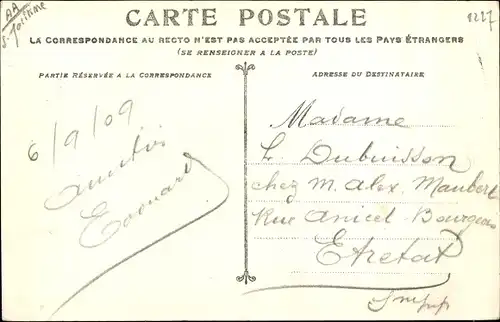 AA
S. Maritime
8227
CARTE POSTALE
LA CORRESPONDANCE AU RECTO N'EST PAS ACCEPTÉE PAR TOUS LES PAYS ÉTRANGERS
(SE RENSEIGNER A LA POSTE)
PARTIE RÉSERVÉE A LA CORRESPONDANCE
ADRESSE DU DESTINATAIRE
6/9/09
Amitiés
Edouard
Madame
L. Dubuisson
chez M. Alex. Maubert
Rue Anicet Bourgeois
Etretat